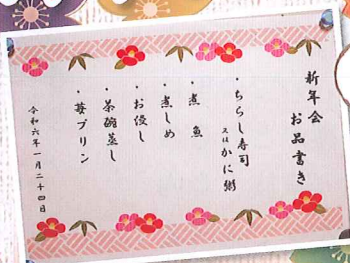 新年会
お品書き
・ちらし寿司
又はかに粥
・煮魚
・煮しめ
・お浸し
・茶碗蒸し
・苺プリン
令和六年一月二十四日